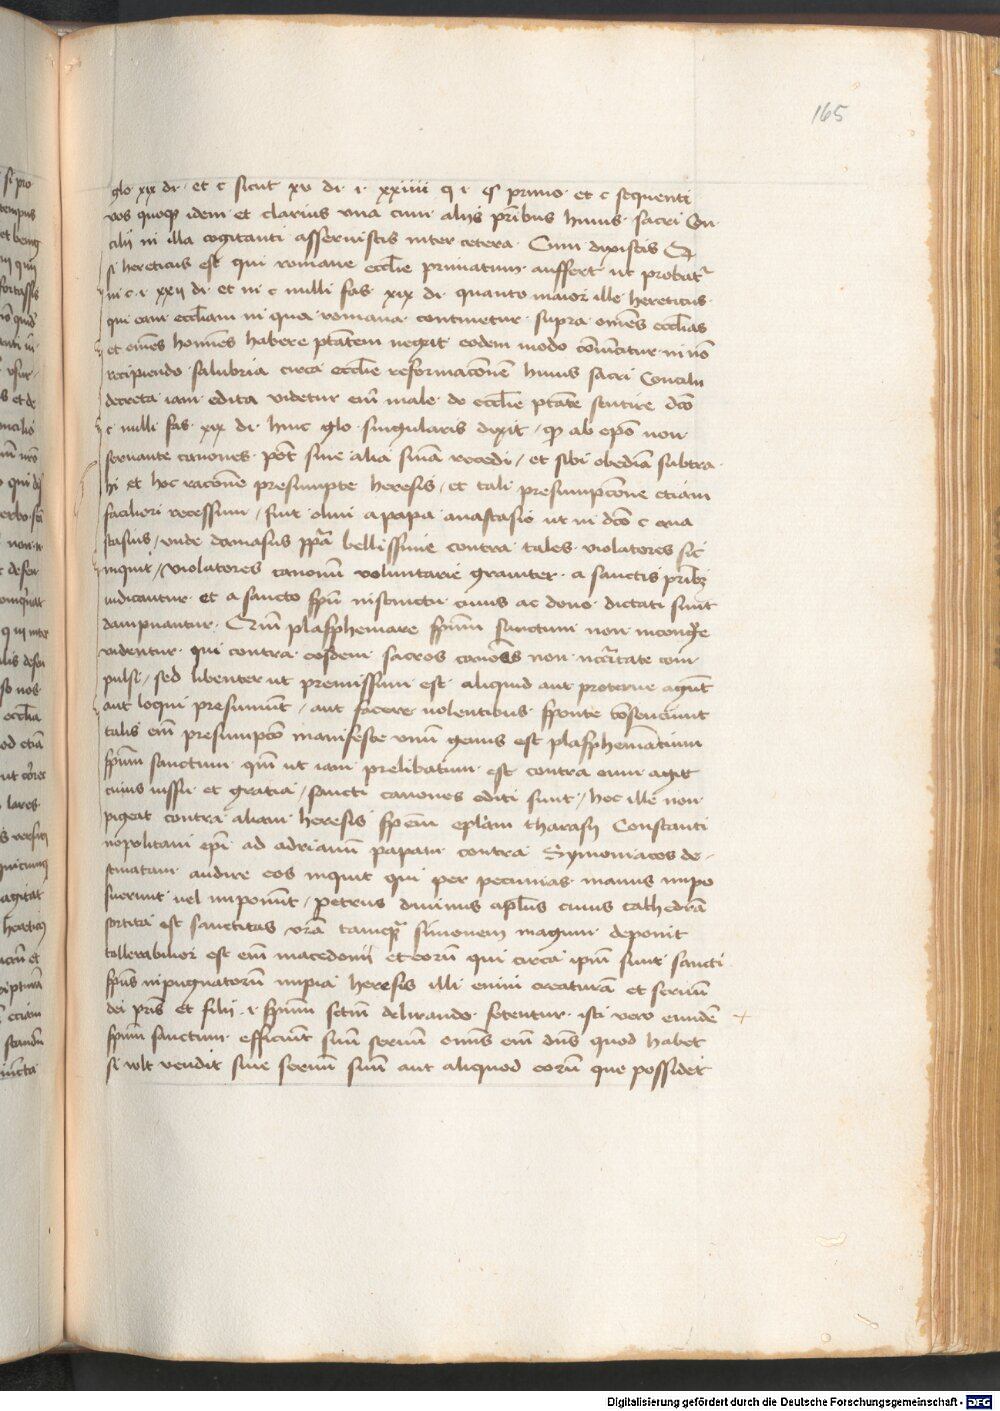 165
glo xix di et c sicut xv di i xxiiii q i § primo et c sequenti
vos quoq3 idem et clarius una cum alijs pribus huius sacri Con
cilij in illa cogitanti asseruistis inter cetera Cum dixistis
si hereticus est qui romane ecclie primatum auffert ut probat
in c i xxij di et in c nulli fas xix di quanto maior ille hereticus
qui eam eccliam in qua romana continetur supra omes ecclias
et omes homies habere ptatem negat eodem modo comcitur in no
recipiendo salubria circa ecclie reformacoem huius sacri Concilii
decreta iam edita videtur em male de ecclie ptate sentire dco
c nulli fas xix di hinc glo singularis dixit / qp ab epo non
seruante canones pot sine alia sma recedi / et sibi obedia subtra
hi et hoc racone presumpte heresis / et tali presumpcone etiam
faciliori recessum / fuit olim a papa anastasio ut in dco c ana
stasius / unde damasus ppa bellissime contra tales violatores sic
inquit / violatores canonu voluntarie grauiter a sanctis prib3
iudicantur et a sancto spu instinctu cuius ac dono dictati sunt
dampnantur Qm plasphemare spum sanctum non incongrue
videntur qui contra eosdem sacros canones non nccitate com
pulsi / sed libenter ut premissum est aliquid aut proterue agunt
aut loqui presumunt / aut facere volentibus sponte consenciunt
talis em presumpco manifeste unu genus est plasphemantium
spum sanctum qm ut iam prelibatum est contra eum agit
cuius iussu et gratia / sancti canones editi sunt / hoc ille non
pigeat contra aliam heresis spem eplam tharasij Constanti
nopolitani epi ad adrianu papam contra Symoniacos de
stinatam audire eos inquit qui per pecunias manus impo
suerunt uel imponunt / petrus diuinus aplus cuius cathedra
sortita est sanctitas vra tamq simonem magum deponit
tollerabilior est em macedonij et eoru qui circa ipm sunt sancti
spus inpugnatoru impia heresis illi enim creatura et seruu
dei pris et filij i spum scm delirando fetentur isti vero eunde
spum sanctum efficiut suu seruu omis em dns quod habet
si vlt vendit siue seruu suu aut aliquod eoru que possidet
Digitalisierung gefördert durch die Deutsche Forschungsgemeinschaft - DFG